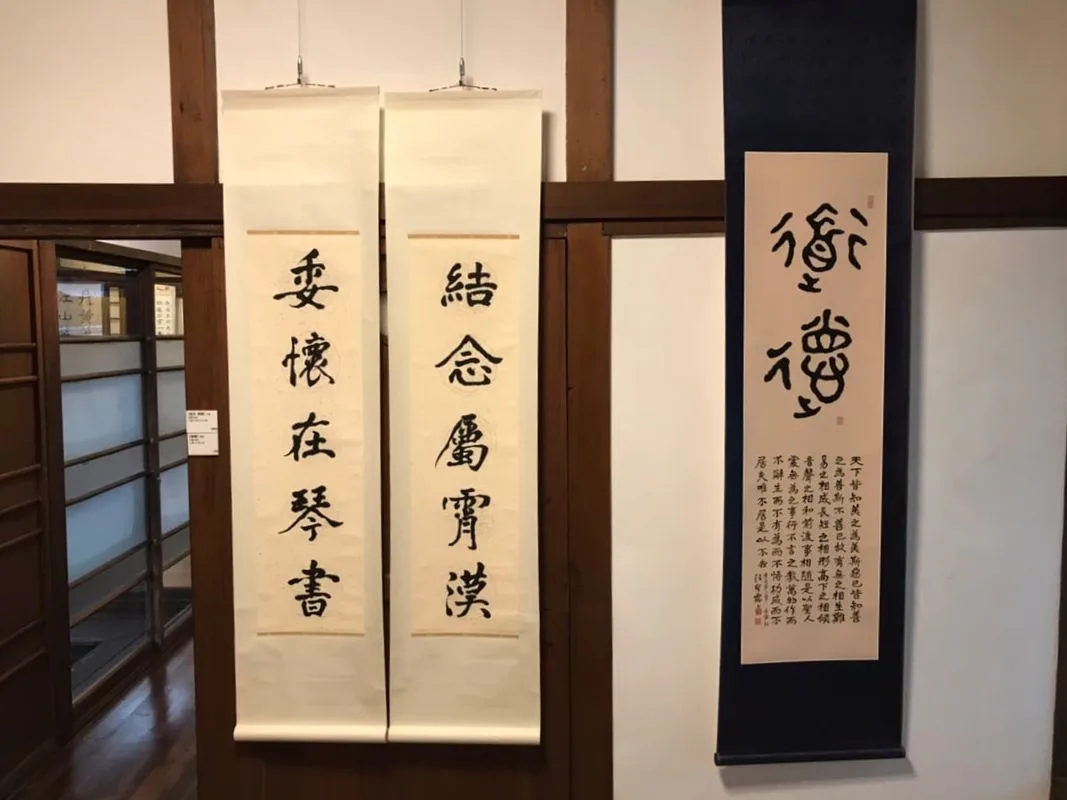 道德
天下皆知美之為美斯惡已皆知善
之為善斯不善已故有無之相生難
易之相成長短之相形高下之相傾
音聲之相和前後之相隨是以聖人
處無為之事行不言之教萬物作而
不辭生而不有為而不恃功成而不
居夫唯不居是以不去
結念屬霄漢
委懷在琴書